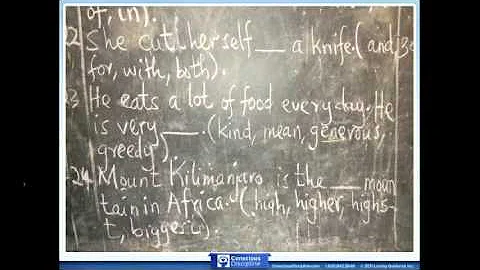 of, in).
22 She cut herself __ a knife. (and,
for, with, both).
He eats a lot of food every day. He
is very ___. (kind, mean, generous,
greedy)
24. Mount Kilimanjaro is the ___ moun
tain in Africa. (high, higher, highs-
t, biggerin).
Conscious
Discipline